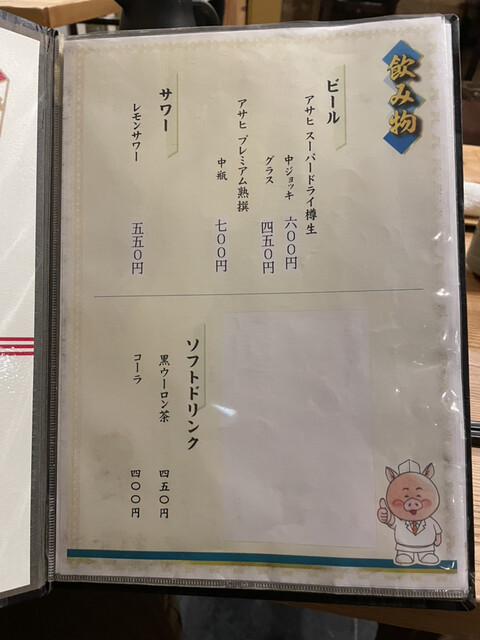 飲み物
ビール
アサヒ スーパードライ樽生
中ジョッキ 六〇〇円
グラス 四五〇円
アサヒ プレミアム熟撰
中瓶 七〇〇円
サワー
レモンサワー 五五〇円
ソフトドリンク
黒ウーロン茶 四五〇円
コーラ 四〇〇円